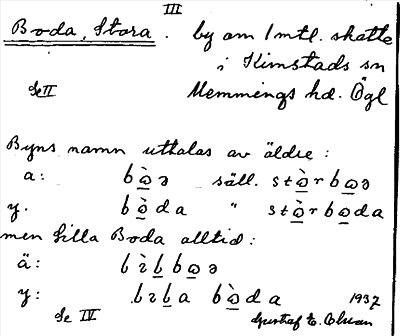 III
Boda, Stora. by om 1 mtl. skatte
i Kimstads sn
Se II Memmings hd. Ögl
Byns namn uttalas av äldre:
a: bὼə säll. stὼrbωə
y. bὼda " stὼrbωda
men Lilla Boda alltid:
ä: lìlbωə
y: lɪla bὼda 1937
Se IV Gustaf E. Olsson